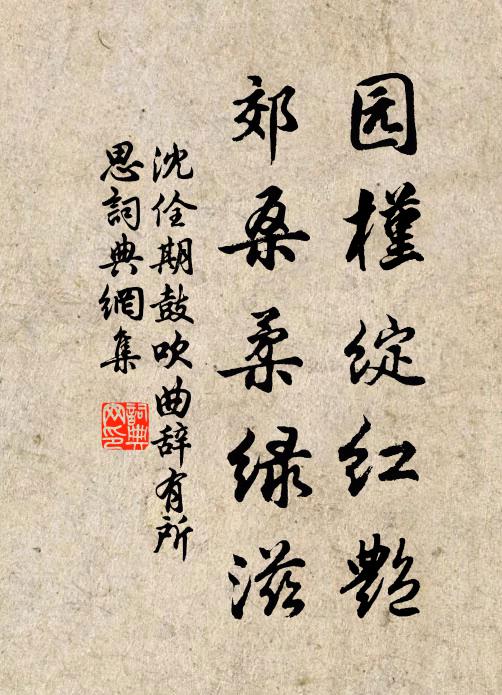 园槿绽红艷
郊桑柔绿滋
沈佺期鼓吹曲辞有所
思詞典網集
詞典
网印